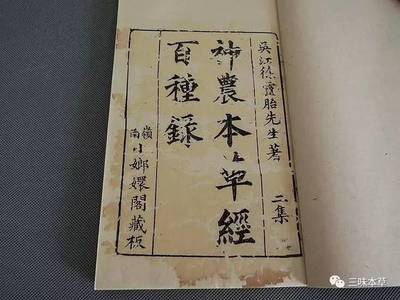 吳江徐靈胎先生著
二集
神農本草經
百種錄
嶺南小嫏嬛閣藏板
三味本草